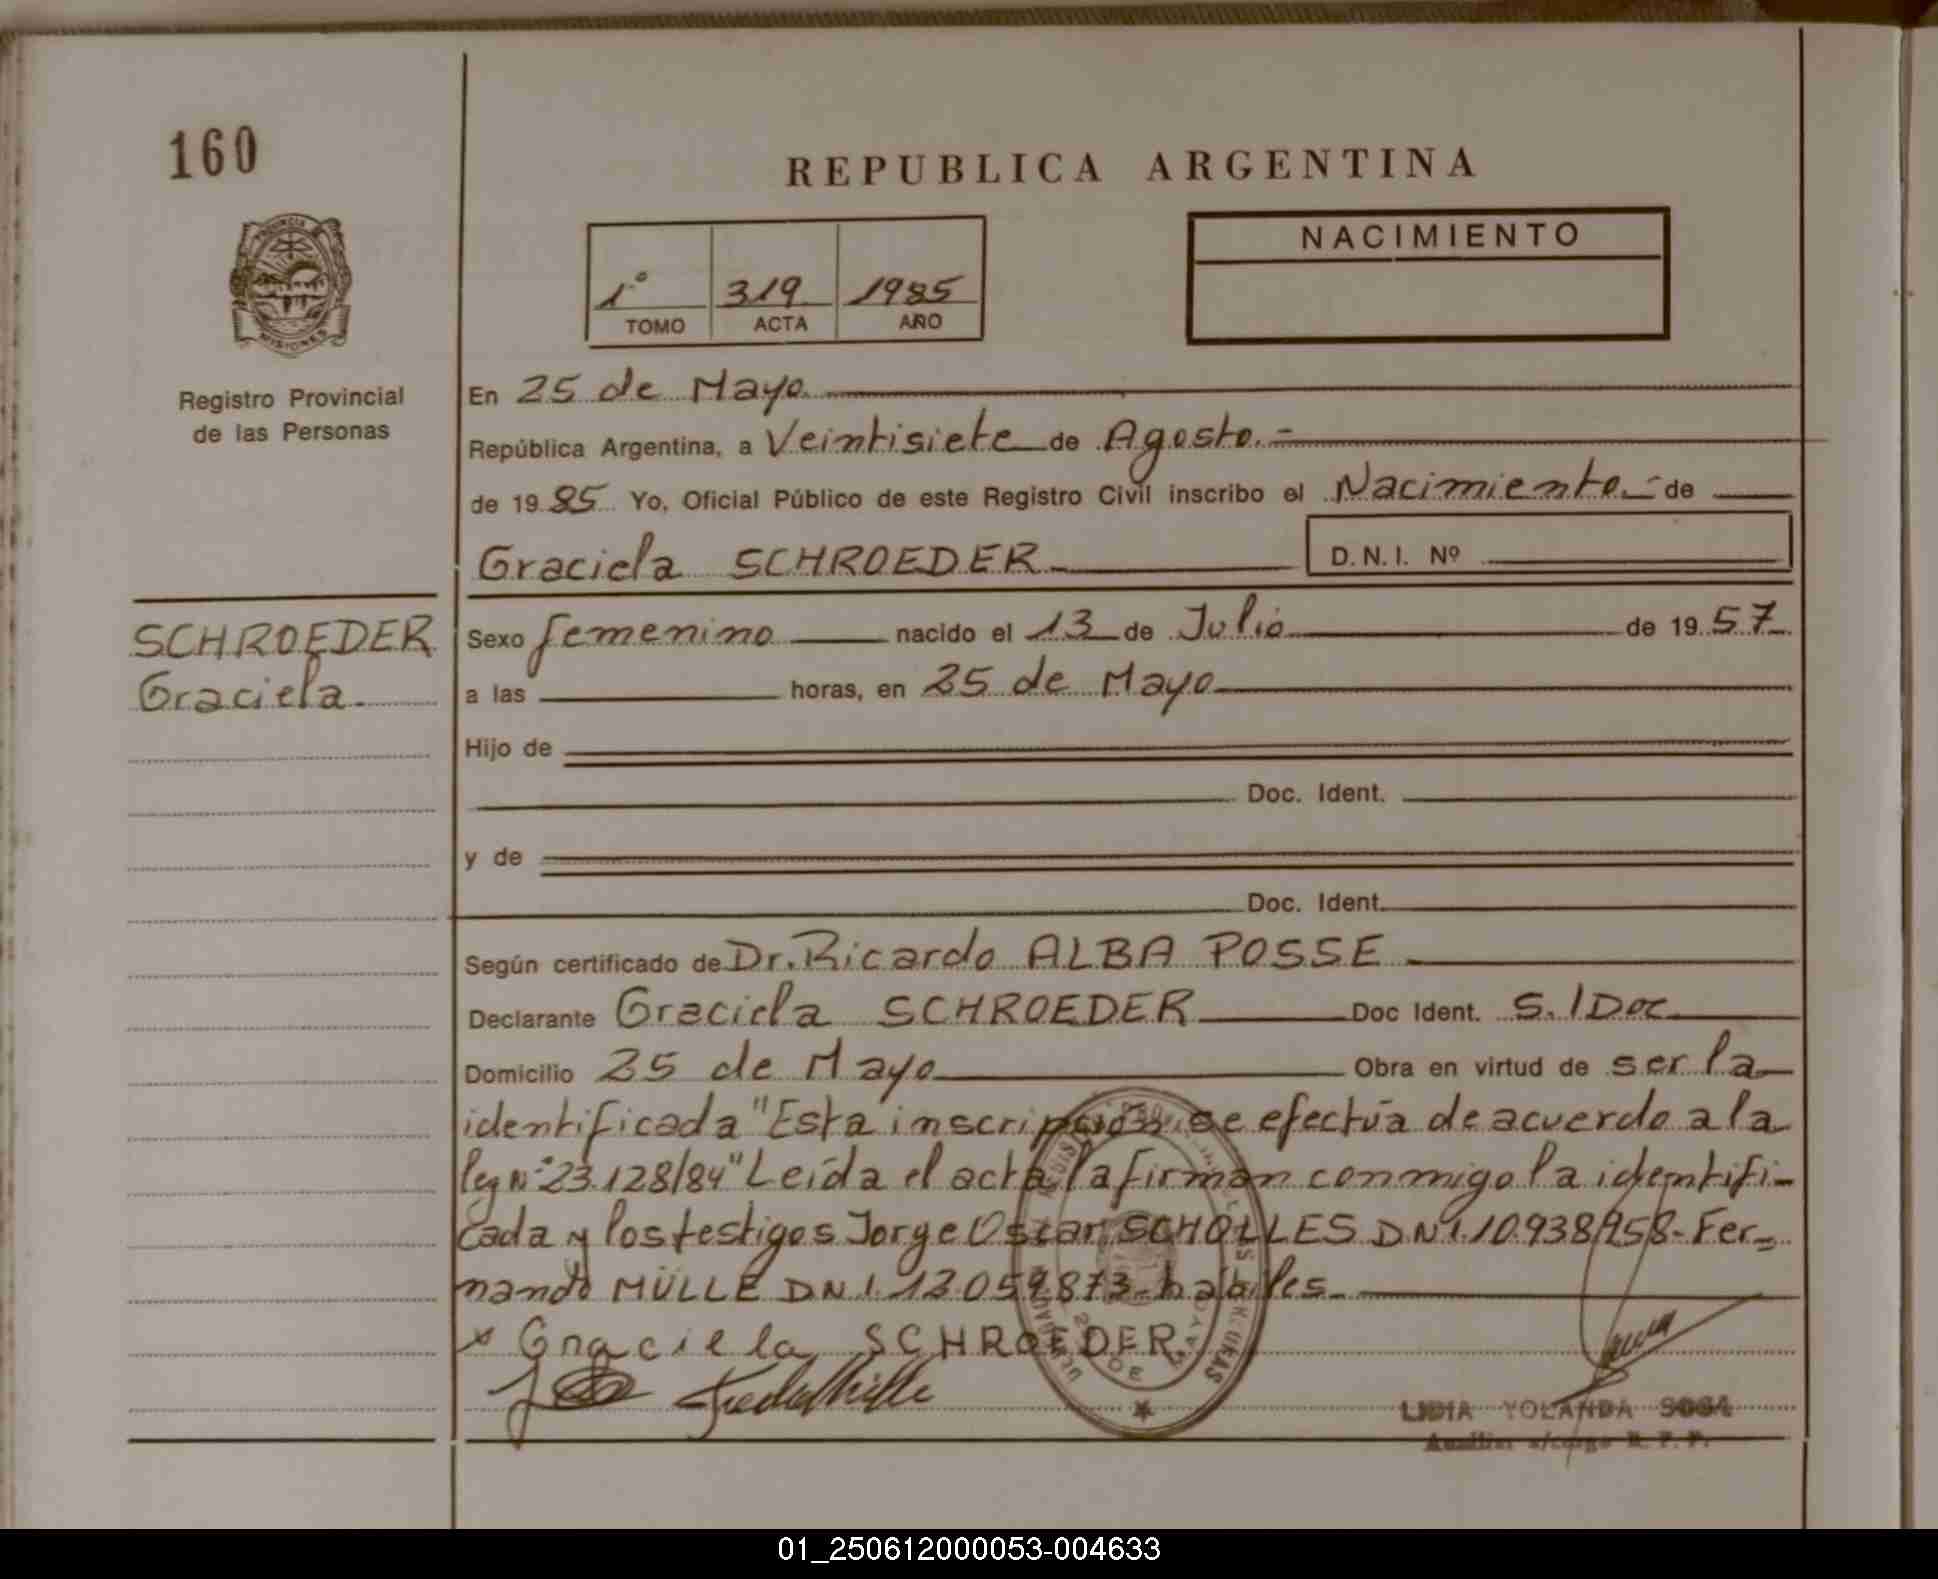 160
REPUBLICA ARGENTINA
NACIMIENTO
1° 319 1985
TOMO ACTA AÑO
PROVINCIA
MISIONES
Registro Provincial
de las Personas
En 25 de Mayo
República Argentina, a Veintisiete de Agosto.-
de 1985 Yo, Oficial Público de este Registro Civil inscribo el Nacimiento.- de
Graciela SCHROEDER D.N.I. Nº
SCHROEDER
Graciela.
Sexo femenino nacido el 13 de Julio de 1957
a las horas, en 25 de Mayo
Hijo de
Doc. Ident.
y de
Doc. Ident.
Según certificado de Dr. Ricardo ALBA POSSE
Declarante Graciela SCHROEDER Doc Ident. S./Doc
Domicilio 25 de Mayo Obra en virtud de ser la
identificada "Esta inscripción se efectúa de acuerdo a la
ley N° 23.128/84" Leída el acta la firman conmigo la identifi-
cada y los testigos Jorge Oscar SCHOLLES DNI.10.938.958- Fer-
nando MÜLLE DNI. 13.059.873- hábiles
x Graciela SCHROEDER
25 DE MAYO
LIDIA YOLANDA SOSA
Auxiliar a/cargo R. P. P.
01_250612000053-004633